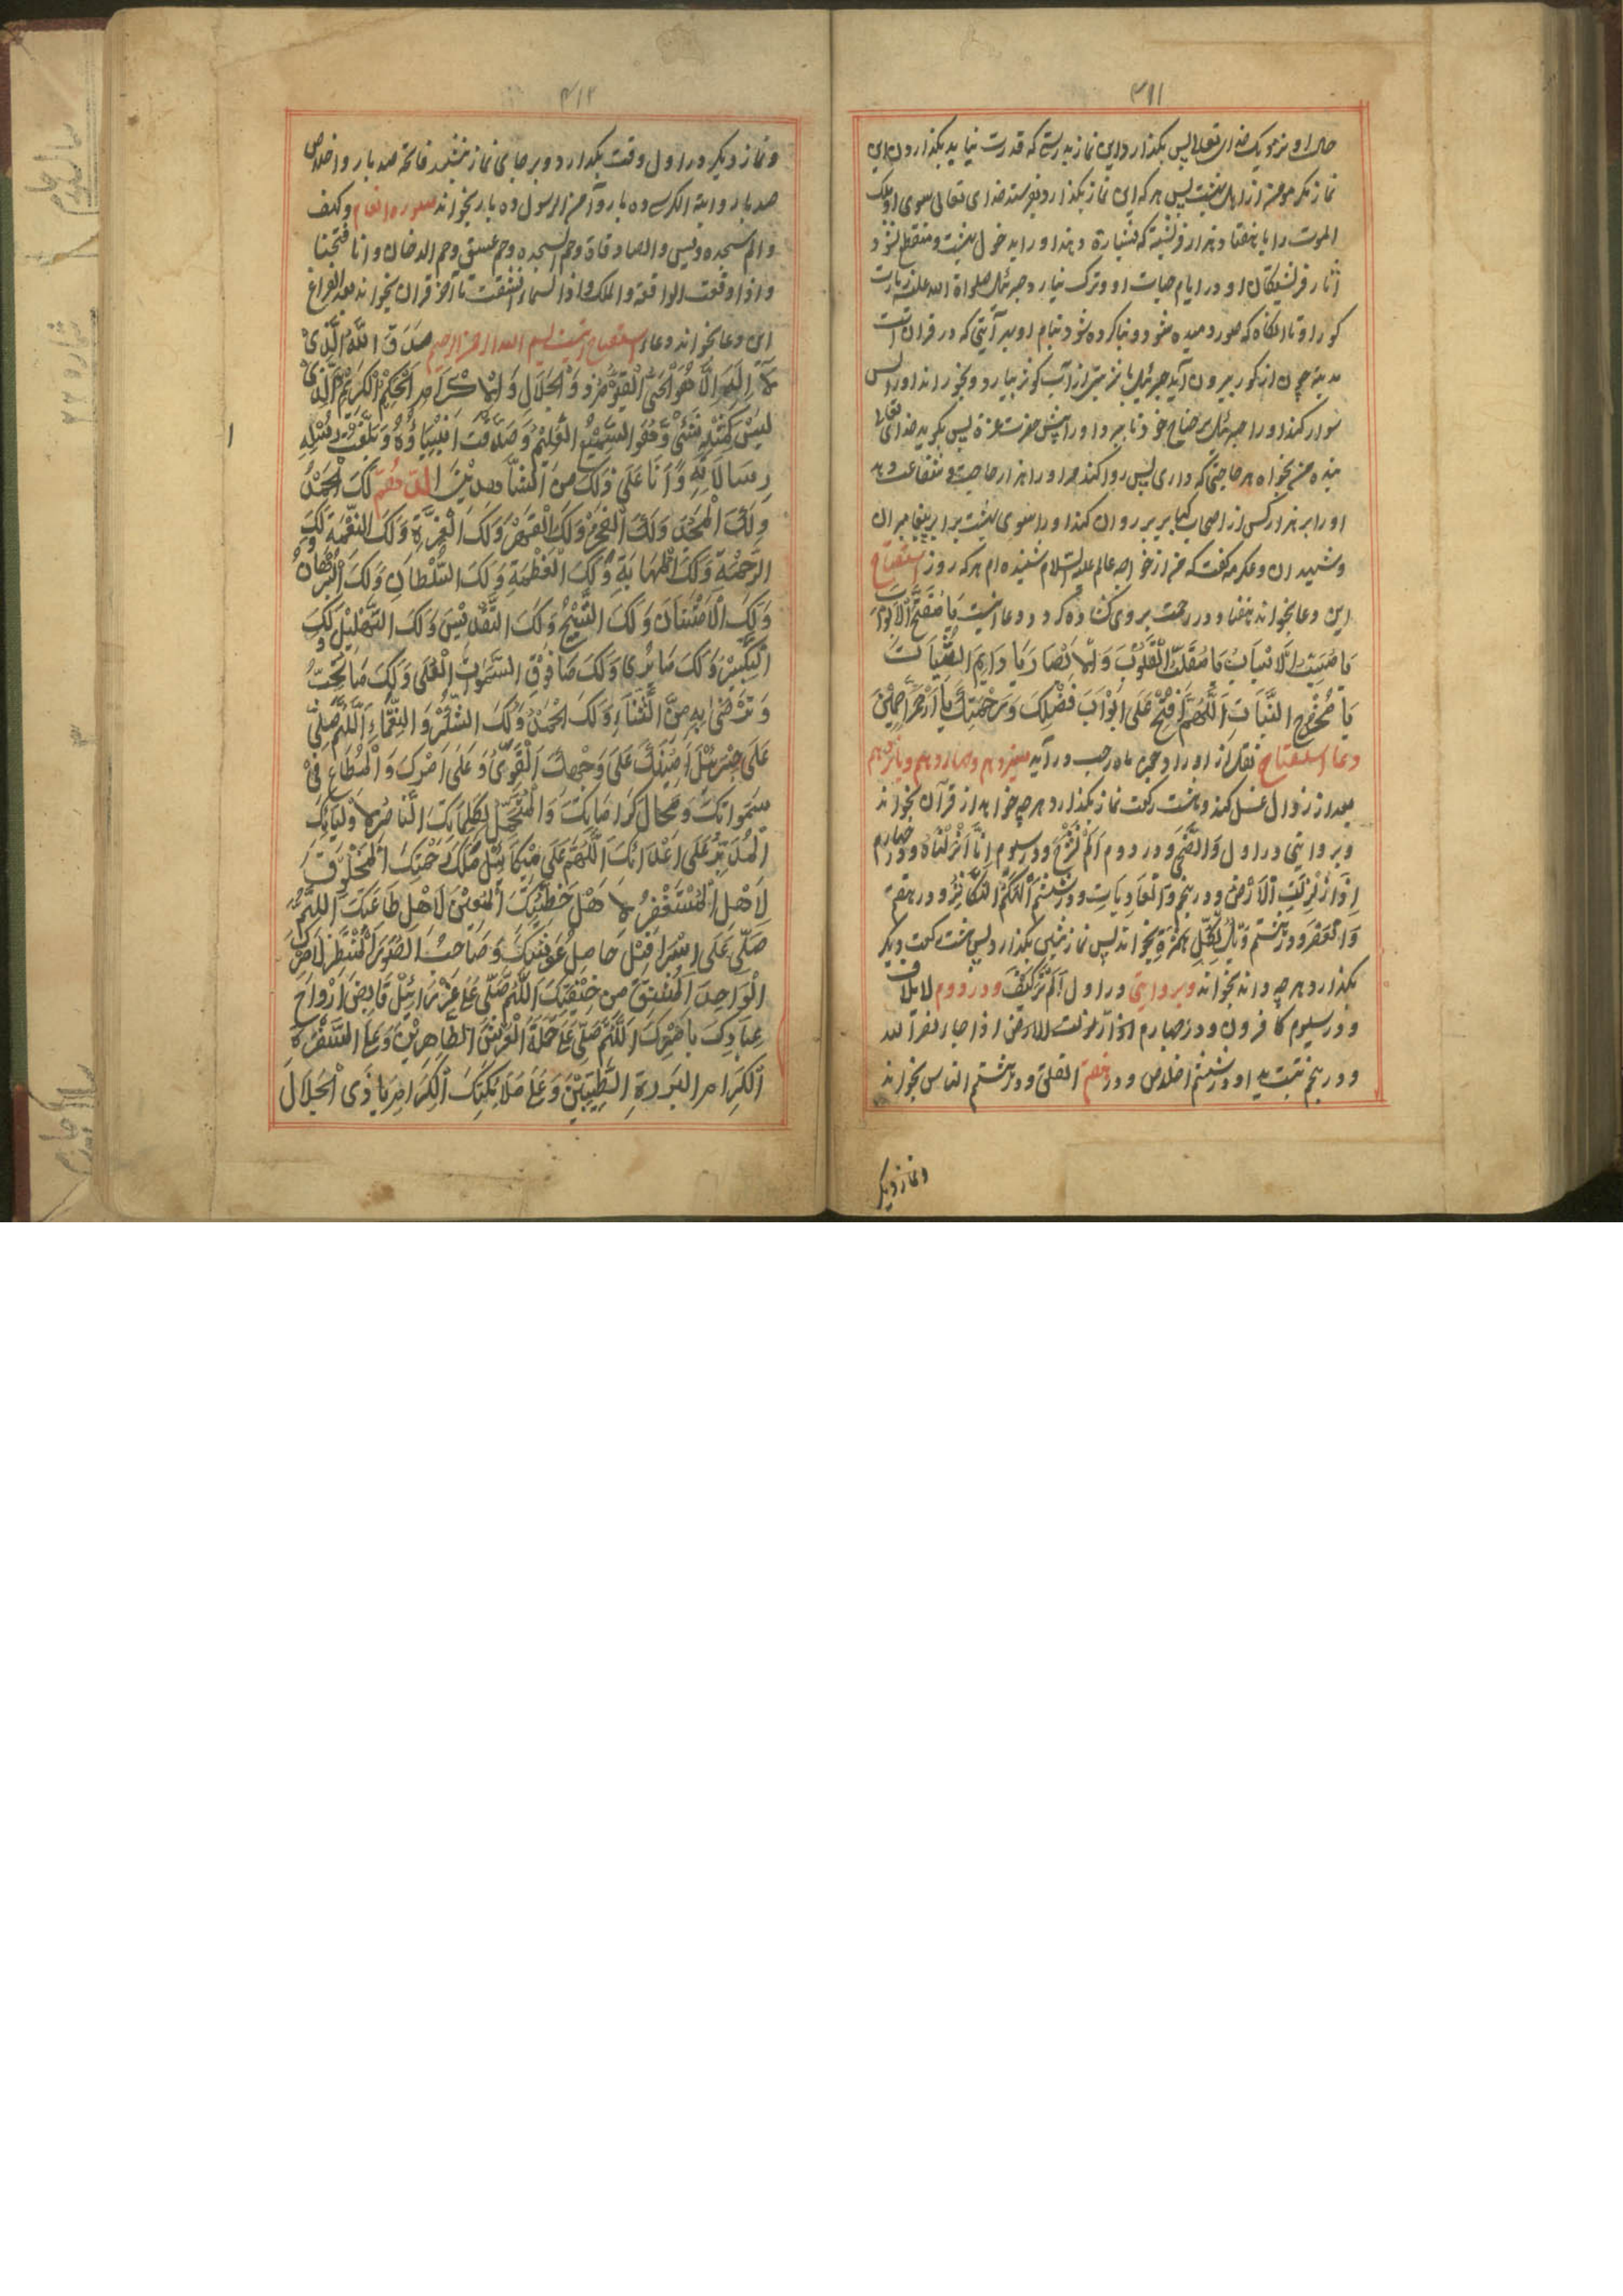 ۳۱۱
نماز مگر مومن از اهل بهشت پس هر که این نماز بگذارد بفرستد خدای تعالی سوی او ملک
الموت را با هفتاد هزار فرشته که بشارة دهند او را بدخول بهشت و منقطع نشود
آثار فرشتکان او در ایام حیات او و ترک نیارد جبرئیل صلواة الله علیه زیارت
کور او تا آنگاه که صور دمیده شود و بنا کرده شود بنام او بهر آیتی که در قران است
مدینه چون از کور بیرون آید جبرئیل
سوار کند او را جبرئیل بر جناح خود تا ببرد او را پیش حضرت عزة پس بگوید خدای تعالی
بنده من بخواه هر حاجتی که داری پس روا کند مر او را هزار حاجت و شفاعت دهد
او را بر هزار کس از اصحاب کبایر پس روان کند او را سوی بهشت برابر پیغامبران
و شهیدان و عکرمه گفت که من از خواجه عالم علیه السلام شنیده ام هر که روز استفتاح
این دعا بخواند هفتاد در رحمت بر وی کشاده کردد دعا اینست یَا مُفَتِّحَ الْاَبْوَابِ
یَا مُقَلِّبَ الْقُلُوْبِ وَالْاَبْصَارِ یَا دَایِمَ
یَا مُخْرِجَ النَّبَاتِ اَللّٰهُمَّ افْتَحْ عَلَی اَبْوَابَ فَضْلِکَ وَرَحْمَتِکَ یَا اَرْحَمَ الرَّاحِمِیْنَ
دعا استفتاح نقل از اوراد چون ماه رجب در آید سیزدهم و چهاردهم و پانزدهم
بعد از زوال غسل کند و هشت رکعت نماز بگذارد هر چه خواهد از قرآن بخواند
و بروایتی در اول وَالضُّحٰی و در دوم اَلَمْ نَشْرَحْ و در سیوم اِنَّا اَنْزَلْنَاهُ و در چهارم
اِذَا زُلْزِلَتِ الْاَرْضُ و در پنجم وَالْعَادِیَاتِ و در ششم اَلْهٰکُمُ التَّکَاثُرُ و در هفتم
وَالْعَصْرِ و در هشتم وَیْلٌ لِّکُلِّ هُمَزَةٍ بخواند پس نماز پیشین بگذارد پس هشت رکعت دیگر
بگذارد هر چه داند بخواند و بروایتی در اول اَلَمْ تَرَکَیْفَ و در دوم لایلاف
و در سیوم کافرون و در چهارم اذا زلزلت الارض اذا جاء نصر الله
و در پنجم تبت یدا و در ششم اخلاص و در هفتم الفلق و در هشتم الناس بخواند
و نماز دیگر
۳۱۲
و نماز دیگر در اول وقت بگذارد و بر جای نماز بنشیند فاتحه صد بار و اخلاص
صد بار و آیة الکرسی ده بار و آمن الرسول ده بار بخواند سوره انعام و کهف
و الم سجده و یس و الصافات و حم السجده و حم عسق و حم الدخان و انا فتحنا
و اذا وقعت الواقعة و الملک و اذا السماء انشقت تا آخر قران بخواند بعد الفراغ
این دعا بخواند دعاء استفتاح اینست بسم الله الرحمن الرحیم صَدَقَ اللّٰهُ الَّذِیْ
لَا اِلٰهَ اِلَّا هُوَ الْحَیُّ الْقَیُّوْمُ ذُو الْجَلَالِ وَالْاِکْرَامِ الْحَکِیْمُ الْکَرِیْمُ الَّذِیْ
لَیْسَ کَمِثْلِهِ شَیْءٌ وَّهُوَ السَّمِیْعُ الْعَلِیْمُ وَصَدَقَتْ اَنْبِیَاؤُهُ وَبَلَّغَتْ رُسُلُهِ
رِسَالَاتِهِ وَاَنَا عَلٰی ذٰلِکَ مِنَ الشَّاهِدِیْنَ اللّٰهُمَّ لَکَ الْحَمْدُ
وَلَکَ الْمَجْدُ وَلَکَ الْفَخْرُ وَلَکَ الْقَهْرُ وَلَکَ الْعِزَّةُ وَلَکَ النِّعْمَةُ وَلَکَ
الرَّحْمَةُ وَلَکَ الْمَهَابَةِ وَلَکَ الْعَظْمَةِ وَلَکَ السُّلْطَانِ وَلَکَ الْبُرْهَانُ
وَلَکَ الْاِمْتِنَانُ وَلَکَ التَّسْبِیْحُ وَلَکَ التَّقْدِیْسُ وَلَکَ التَّهْلِیْلُ وَلَکَ
التَّکْبِیْرُ وَلَکَ مَا یُرٰی وَلَکَ مَا فَوْقَ السَّمٰوَاتِ الْعُلٰی وَلَکَ مَا تُحِبُّ
وَتَرْضٰی بِهِ مِنَ الثَّنَاءِ وَلَکَ الْحَمْدُ وَلَکَ الشُّکْرُ وَ النِّعْمَاءِ اَللّٰهُمَّ صَلِّ
عَلٰی جِبْرَئِیْلَ اَمِیْنِکَ عَلٰی وَحْیِکَ الْقَوِیُّ عَلٰی اَمْرِکَ وَالْمُطَاعِ فِیْ
سَمٰوَاتِکَ وَمَحَالِّ کَرَامَاتِکَ وَالْمُتَحَمِّلِ لِکَلِمَاتِکَ النَّاصِرِ لِاَوْلِیَائِکَ
الْمُدَمِّرُ عَلٰی اَعْدَائِکَ اَللّٰهُمَّ عَلٰی مِیْکَائِیْلَ مَلَکِ رَحْمَتِکَ الْمَخْلُوْقِ
الْمُسْتَغْفِرُ الْمُعِیْنُ لِاَهْلِ طَاعَتِکَ اَللّٰهُمَّ
صَلِّیْ عَلٰی اِسْرَافِیْلَ حَامِلِ عَرْشِکَ وَصَاحِبُ الصُّوْرِ الْمُنْتَظِرْ لِاَمْرِکَ
الْوَاجِدِ الْمُشْفِقُ مِنْ خِیْفَتِکَ اَللّٰهُمَّ صَلِّی عَلٰی عَزْرَائِیْلَ قَابِضَ اَرْوَاحِ
عِبَادِکَ بِاَمْرِکَ اَللّٰهُمَّ صَلِّی عَلٰی حَمَلَةِ الْعَرْشِ الطَّاهِرِیْنَ وَعَلَی السَّفَرَةِ
الْکِرَامِ الْبَرَرَةِ الطَّیِّبِیْنَ وَعَلٰی مَلَائِکَتِکَ الْکِرَامِ یَا ذَی الْجَلَالِ